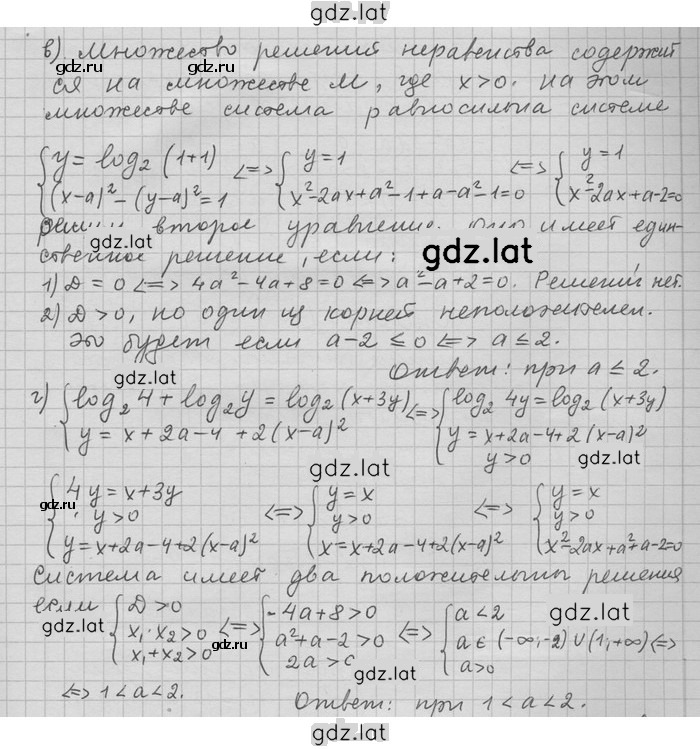 gdz.lat
в) Множество решений неравенства содержит
ся на множестве M, где x>0. На этом
gdz.lat
множестве система равносильна системе
{ y = log₂(1+1) (x-a)²-(y-a)²=1 <=> { y=1 x²-2ax+a²-1+a-a²-1=0 <=> { y=1 x²-2ax+a-2=0
второе уравнение. имеет един-
gdz.lat
ственное решение, если:
gdz.lat
1) D=0 <=> 4a²-4a+8=0 <=> a²-a+2=0. Решений нет.
2) D>0, но один из корней неположителен.
Это будет если a-2≤0 <=> a≤2.
gdz.lat
Ответ: при a≤2.
г) { log₂4+log₂y=log₂(x+3y) y=x+2a-4+2(x-a)² <=> { log₂4y=log₂(x+3y) y=x+2a-4+2(x-a)² y>0
gdz.lat
gdz.lat
{ 4y=x+3y y>0 y=x+2a-4+2(x-a)² <=> { y=x y>0 x=x+2a-4+2(x-a)² <=> { y=x y>0 x²-2ax+a²+a-2=0
gdz.lat
gdz.lat
Система имеет два положительных решения
если { D>0 x₁·x₂>0 x₁+x₂>0 <=> { -4a+8>0 a²+a-2>0 2a>0 <=> { a<2 a∈(-∞,-2)∪(1,+∞) a>0 <=>
gdz.lat
gdz.lat
gdz.lat
<=> 1<a<2.
Ответ: при 1<a<2.
gdz.lat